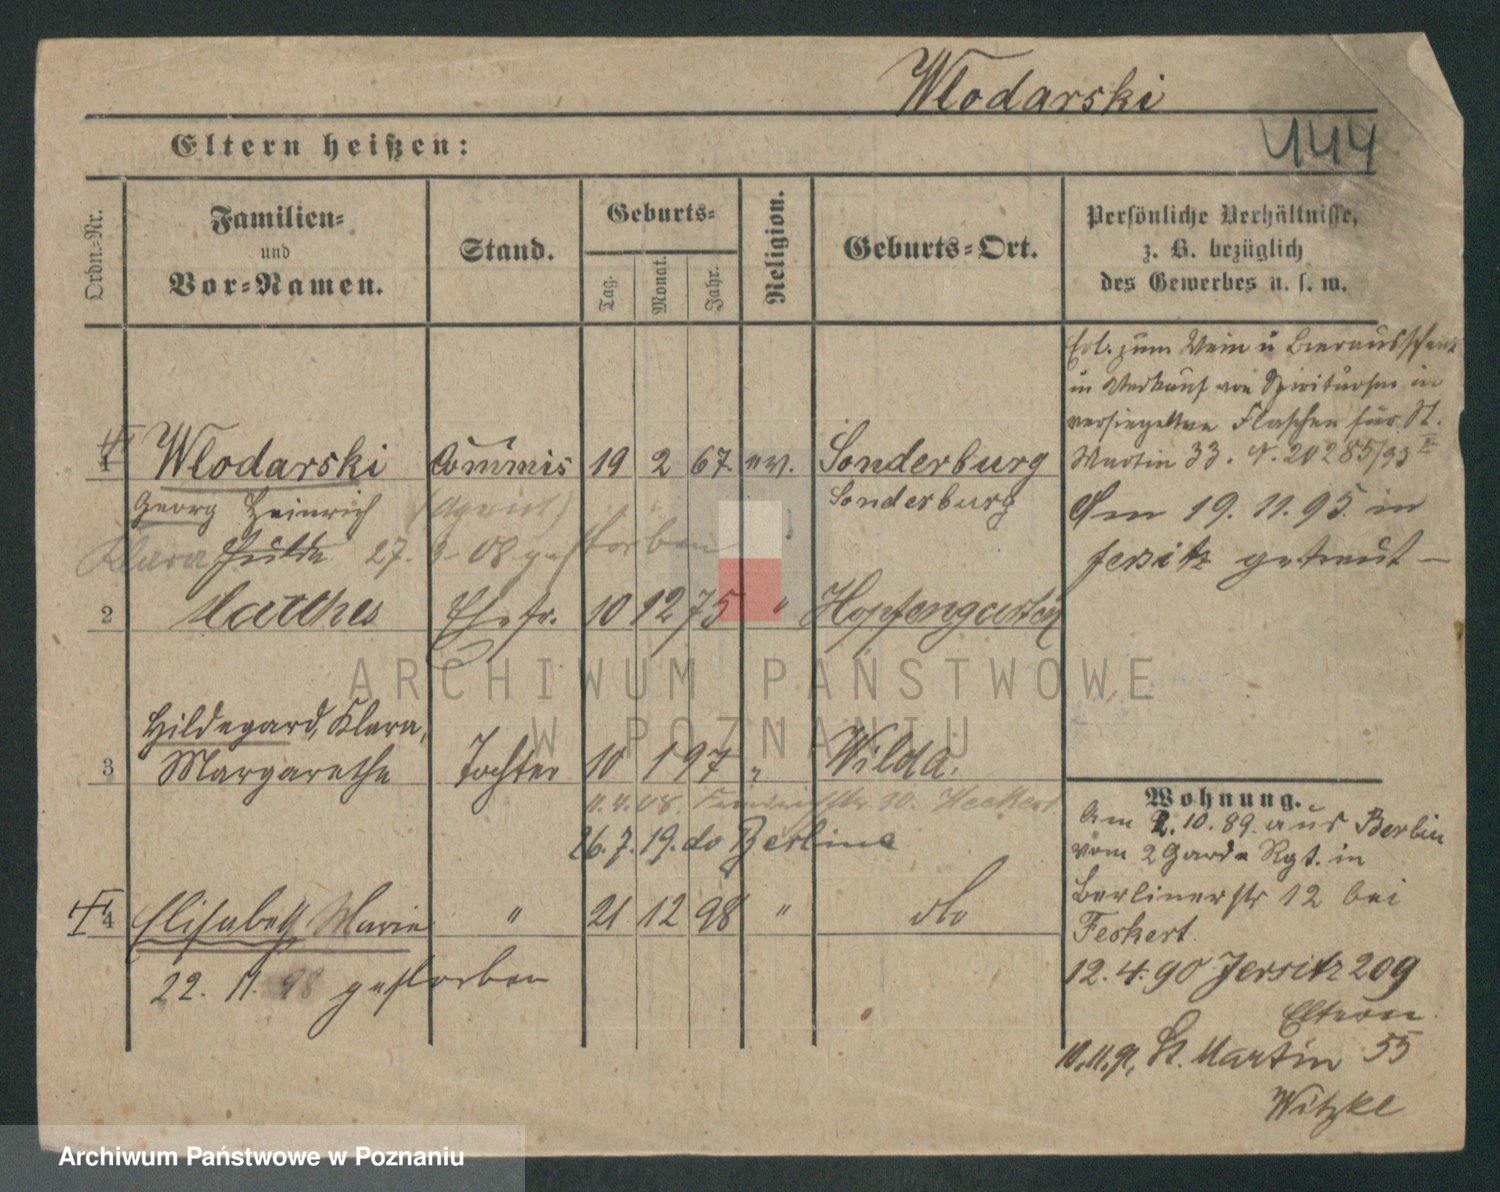 Wlodarski
444
Eltern heißen:
Ordn.-Nr.
Familien-
und
Vor-Namen.
Stand.
Geburts-
Tag.
Monat.
Jahr.
Religion.
Geburts-Ort.
Persönliche Verhältnisse,
z. B. bezüglich
des Gewerbes u. s. w.
Erl. zum Wein u Bierausschank
in Verkauf von Spirituosen in
versiegelten Flaschen für St.
Martin 33. 20285/93 II
Am 19.11.95. in
Jersitz getraut —
1 Wlodarski Commis 19 2 67. ev. Sonderburg
Georg Heinrich (Agent) Sonderburg
Klara Hulda 27. 3. 08 gestorben
2 Matthes Ehefr. 10 12 75 " Hopfengarten
Hildegard, Klara,
3 Margarethe Tochter 10 1 97 " Wilda.
11.4.08. 30. Heckert
26.7.19. do Berline
4 Elisabeth Marie " 21 12 98 " do
22. 11. 98 gestorben
Wohnung.
Am 2.10.89. aus Berlin
vom 2 Garde Rgt. in
Berlinerstr 12 bei
Feckert
12.4.90 Jersitz 209
Eltern
10.11.91, St. Martin 55
Witzke
ARCHIWUM PAŃSTWOWE
W POZNANIU
Archiwum Państwowe w Poznaniu